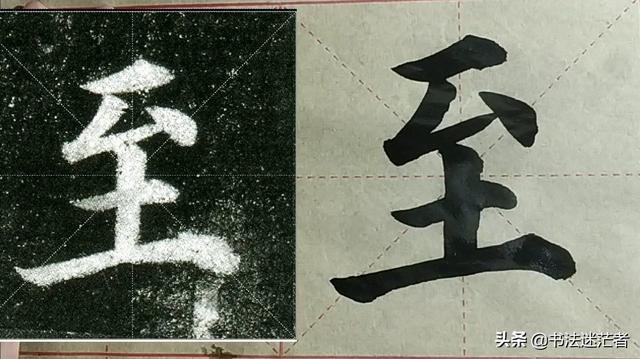 至 至
头条 @书法迷茫者